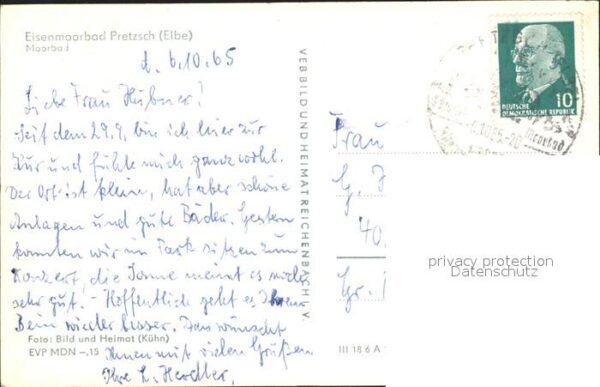 Eisenmoorbad Pretzsch (Elbe)
Moorbad
d. 6.10.65
Liebe Frau Hübner!
Seit dem 29.9. bin ich hier zur
Kur und fühle mich ganz wohl.
Der Ort ist klein, hat aber schöne
Anlagen und gute Bäder. Gestern
konnten wir im Park sitzen zum
Konzert, die Sonne meint es noch
sehr gut. - Hoffentlich geht es Ihrem
Bein wieder besser. Das wünscht
Ihnen mit vielen Grüßen
Ihre L.
Foto: Bild und Heimat (Kühn)
EVP MDN –,15
VEB BILD UND HEIMAT REICHENBACH i. V.
III 18 6 A
DEUTSCHE
DEMOKRATISCHE REPUBLIK
10
Frau
G.
40
Gr.
privacy protection
Datenschutz